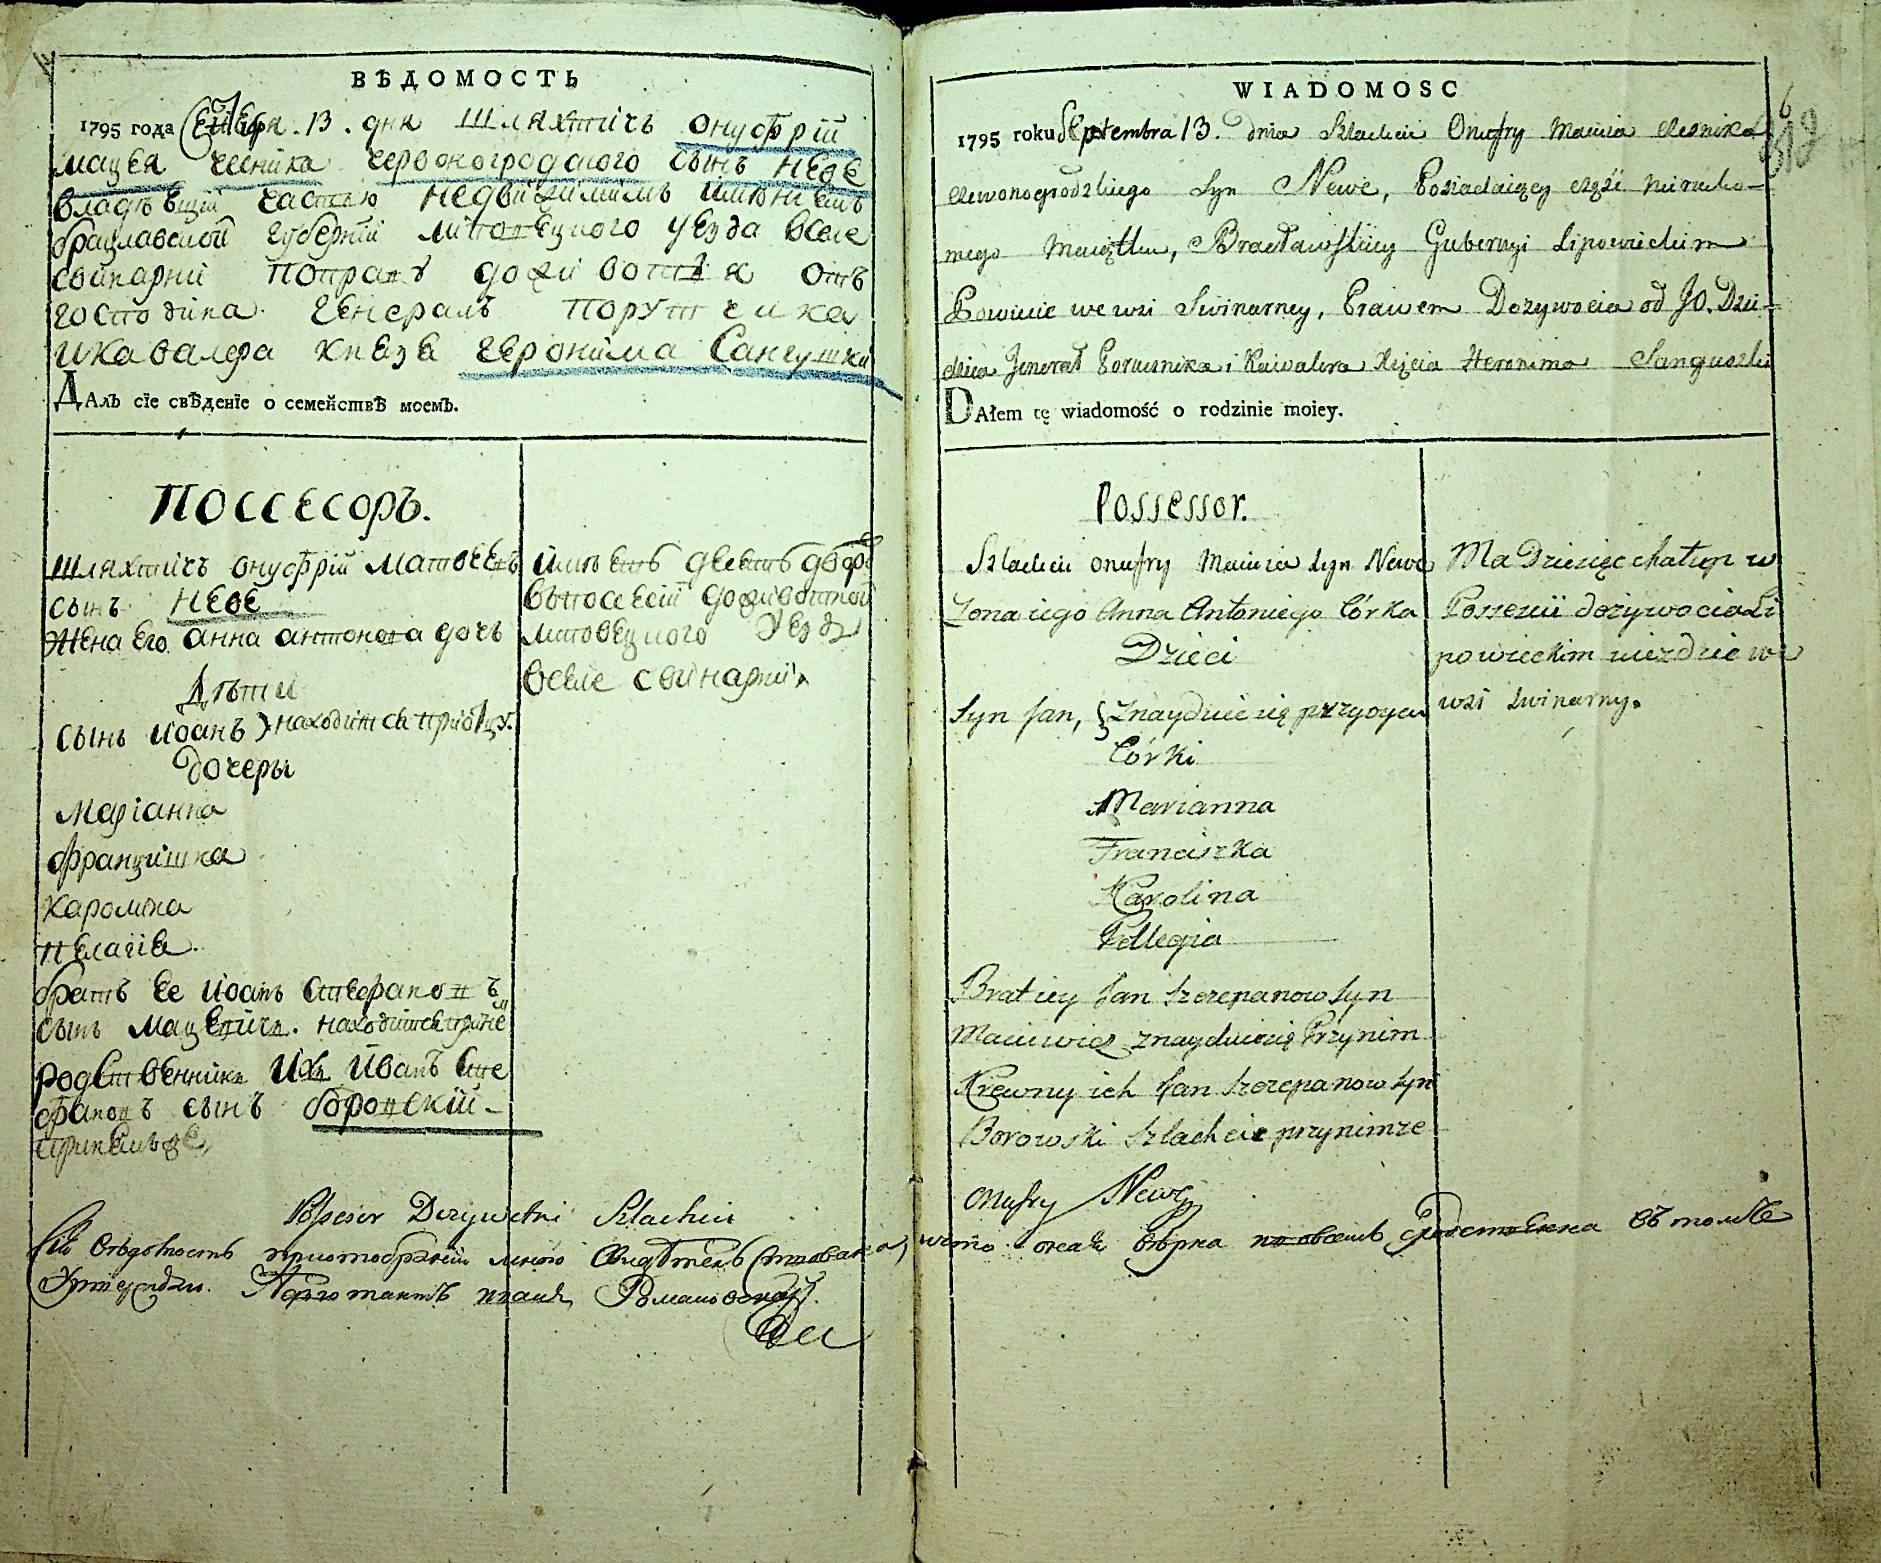 ВѢДОМОСТЬ
1795 года Сентебря . 13 . дня Шляхтичъ Онуфрій
Мацея чесника червоногродского сынъ Неве
владѣющій частью недвижимымъ имѣніемъ
брацлавской губерній липовецкого уезда вселе
свинарни поправу доживотія отъ
господина Генералъ Порутчика
икавалера князя Геронима Сангушки
ДАлъ сїе свѣденїе о семействѣ моемъ.
Поссесоръ.
Шляхтичъ Онуфрій Матвеевъ
сынъ Неве
Жена Его анна антонова дочь
Дѣти
сынъ Иоанъ } находится приотцу.
дочеры
Маріанна
францишка
каролина
пелагіа.
братъ Ее Иоанъ Стефановъ
сынъ Мацевичъ. находится принем
родственникъ Ихъ Иванъ Сте
фановъ сынъ боровскій
имѣетъ десеть дворовъ
впосесій доживотной
липовецкого уезду
вселе свинарни.
Possesor Dozywotni Szlachcic
Сію Вѣдомость
WIADOMOSC
1795 roku Septembra 13. Dnia Szlachcic Onufry Macieia Czesnika
czerwonogrodzkiego Syn Newe, Posiadaiący część nierucho-
mego Maiątku, Bracławskiey Gubernyi Lipowieckim
Powiecie we wsi Swinarney, Prawem Dożywocia od JO. Dzie-
dzica Jenerał Porucznika i Kawalera Xięcia Heronima Sanguszki
DAłem tę wiadomość o rodzinie moiey.
Possessor.
Szlachcic Onufry Macieia Syn Newe
Żona iego Anna Antoniego Córka
Dzieci
Syn Jan, } Znayduie się przyoycu
Córki
Marianna
Franciszka
Karolina
Pellegia
Brat iey Jan Szczepanow Syn
Maciewicz znayduiesię Przynim
Krewny ich Jan Szczepanow Syn
Borowski Szlachcic przynimże
Ma Dziesięc chałup w
Possesii dożywocia Li
powieckim uiezdzie we
wsi Swinarny.
Onufry Newe